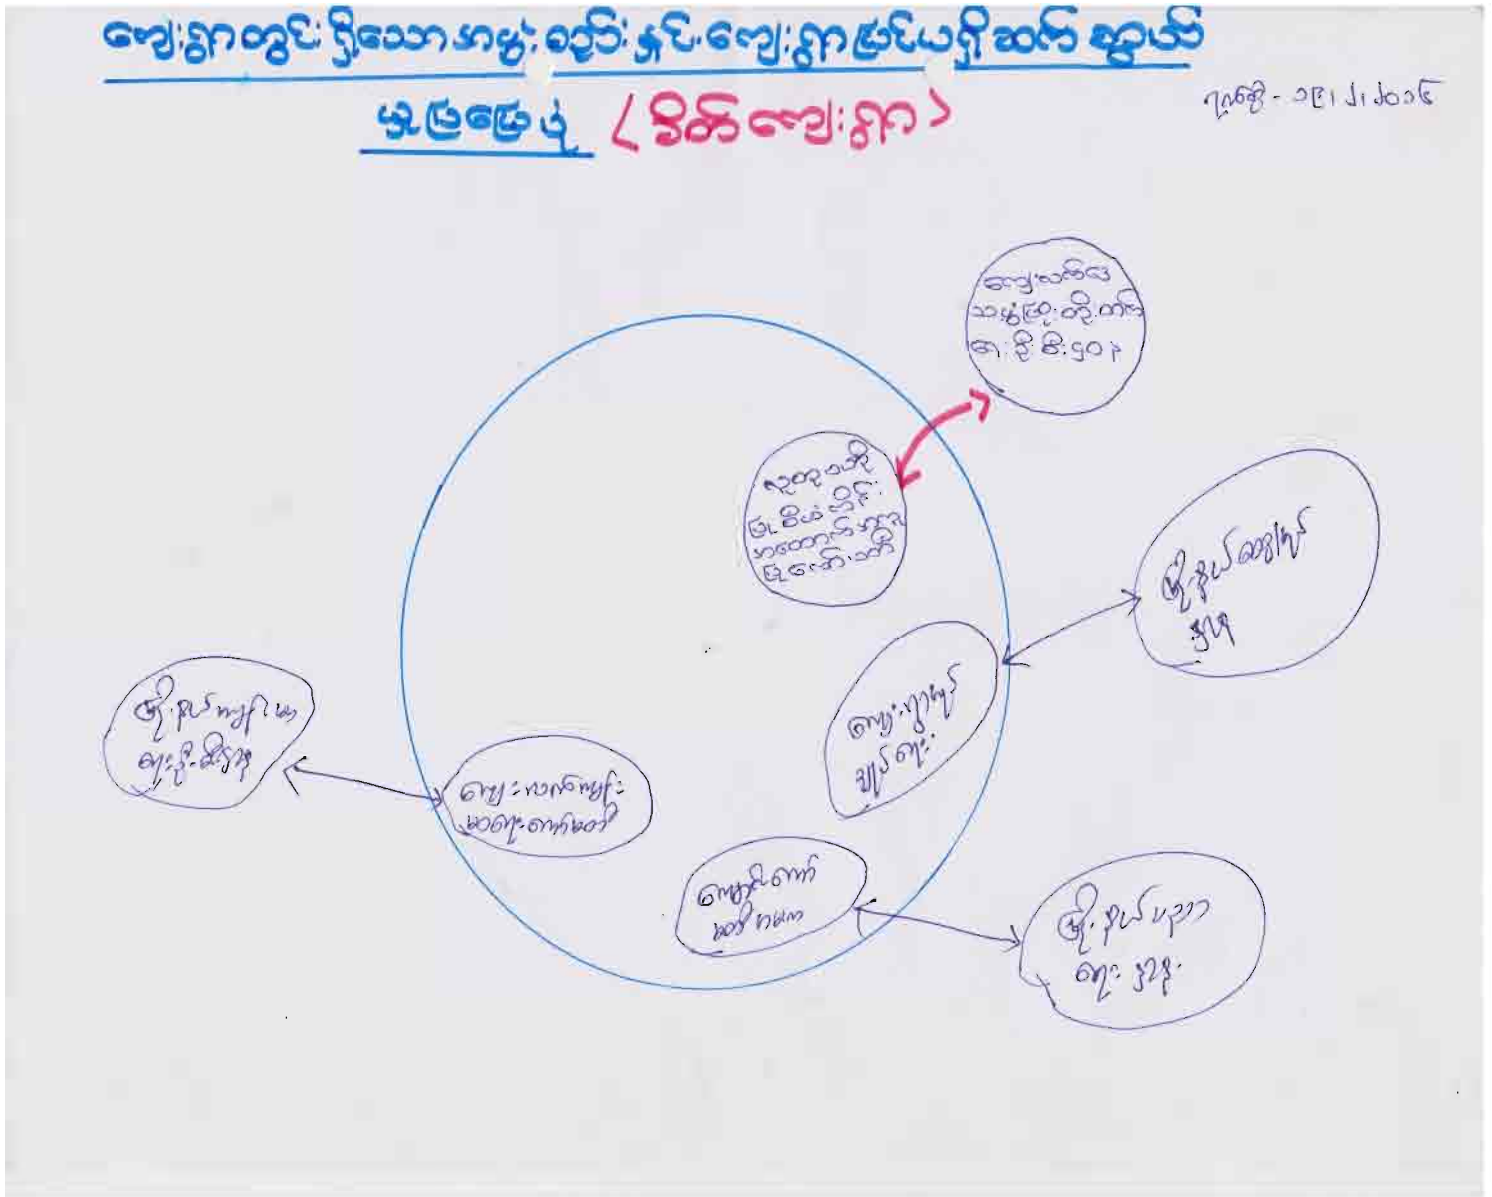 ကျေးရွာတွင်းရှိသောအဖွဲ့အစည်းနှင့်ကျေးရွာပြင်ပရှိဆက်သွယ်
မှုပြမြေပုံ (စိတ်ကျေးရွာ)
ရက်စွဲ - ၁၄၊ ၂၊ ၂၀၁၆
ကျေးလက်ဒေ
သဖွံ့ဖြိုးတိုးတက်
ရေးဦးစီးဌာန
လူထုဗဟို
ပြုစီမံကိန်း
အထောက်အကူ
ပြုကော်မတီ
မြို့နယ်အုပ်ချုပ်
ဌာန
ကျေးရွာအုပ်
ချုပ်ရေး
မြို့နယ်ကျန်းမာ
ရေးဦးစီးဌာန
ကျေးလက်ကျန်း
မာရေးကော်မတီ
ကျောင်းကော်
မတီ
မြို့နယ်ပညာ
ရေးဌာန